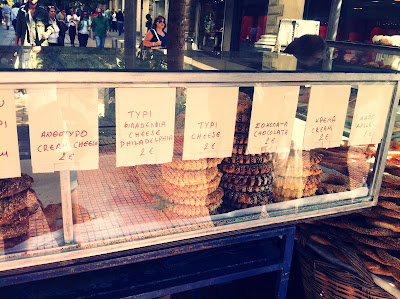 ΑΝΘΟΤΥΡΟ
CREAM CHEESE
2€
ΤΥΡΙ
ΦΙΛΑΔΕΛΦΙΑ
CHEESE
PHILADELPHIA
2€
ΤΥΡΙ
CHEESE
2€
ΣΟΚΟΛΑΤΑ
CHOCOLATE
2€
ΚΡΕΜΑ
CREAM
2€